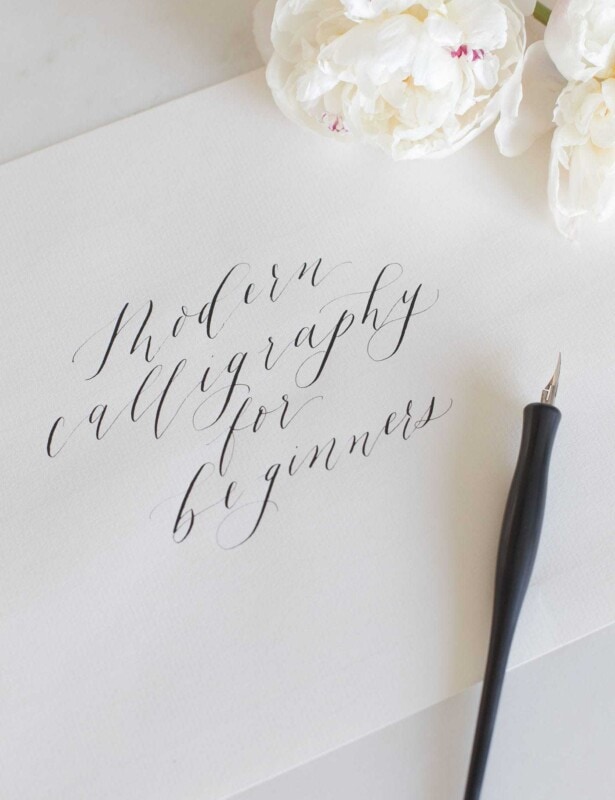 Modern
calligraphy
for
beginners